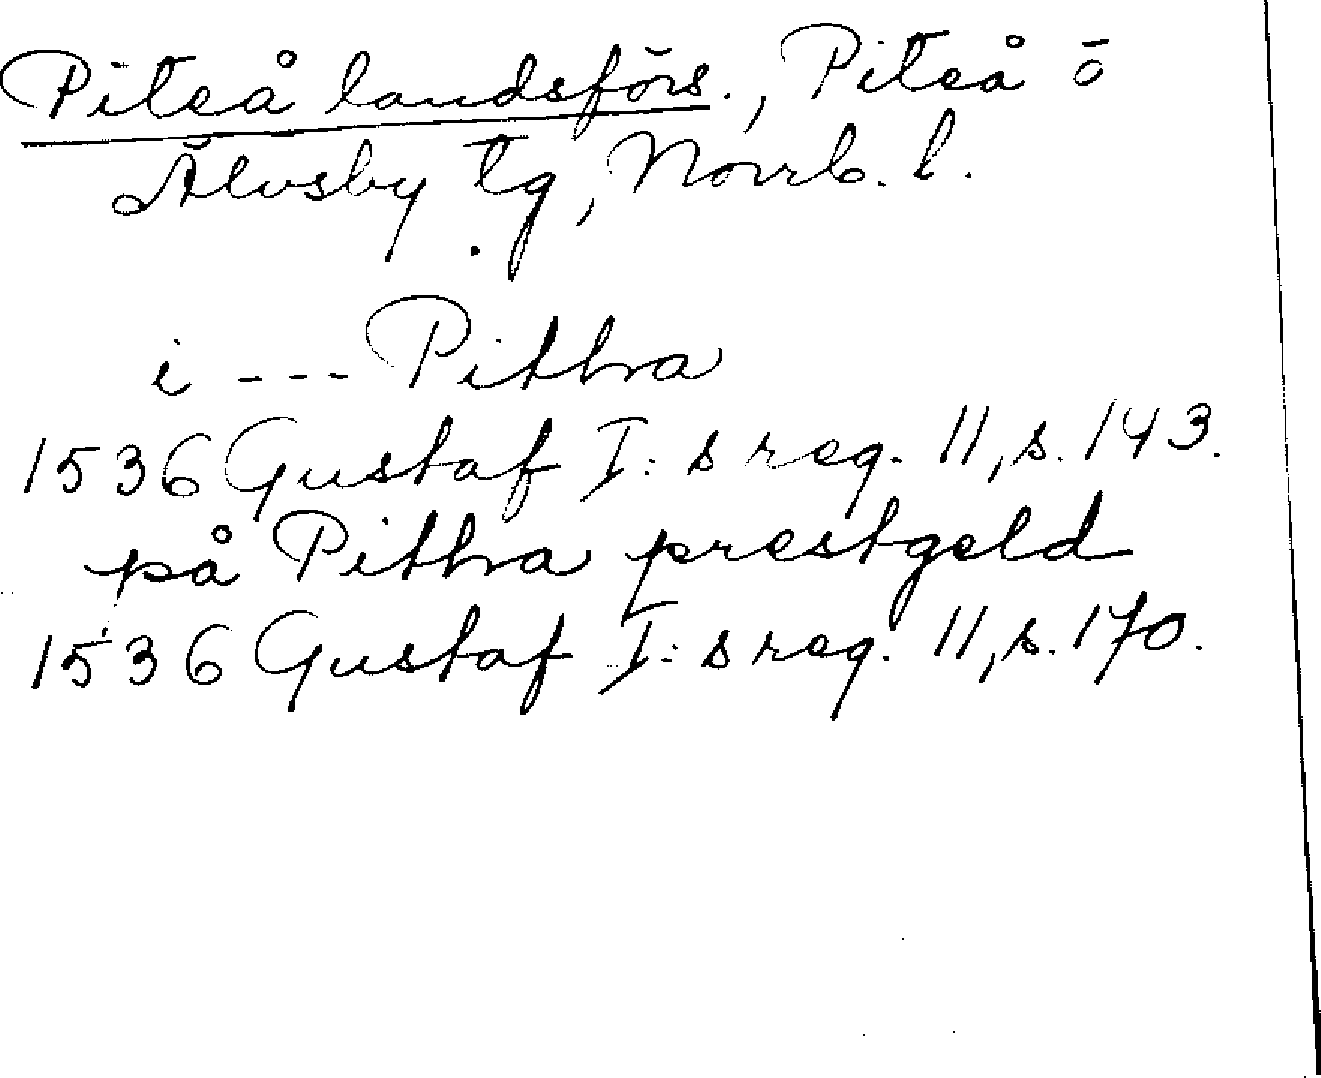 Piteå landsförs., Piteå o
Älvsby tg, Norrb. l.
i --- Pithra
1536 Gustaf I:s reg. 11, s. 143.
på Pithra prestgeld
1536 Gustaf I:s reg. 11, s. 170.